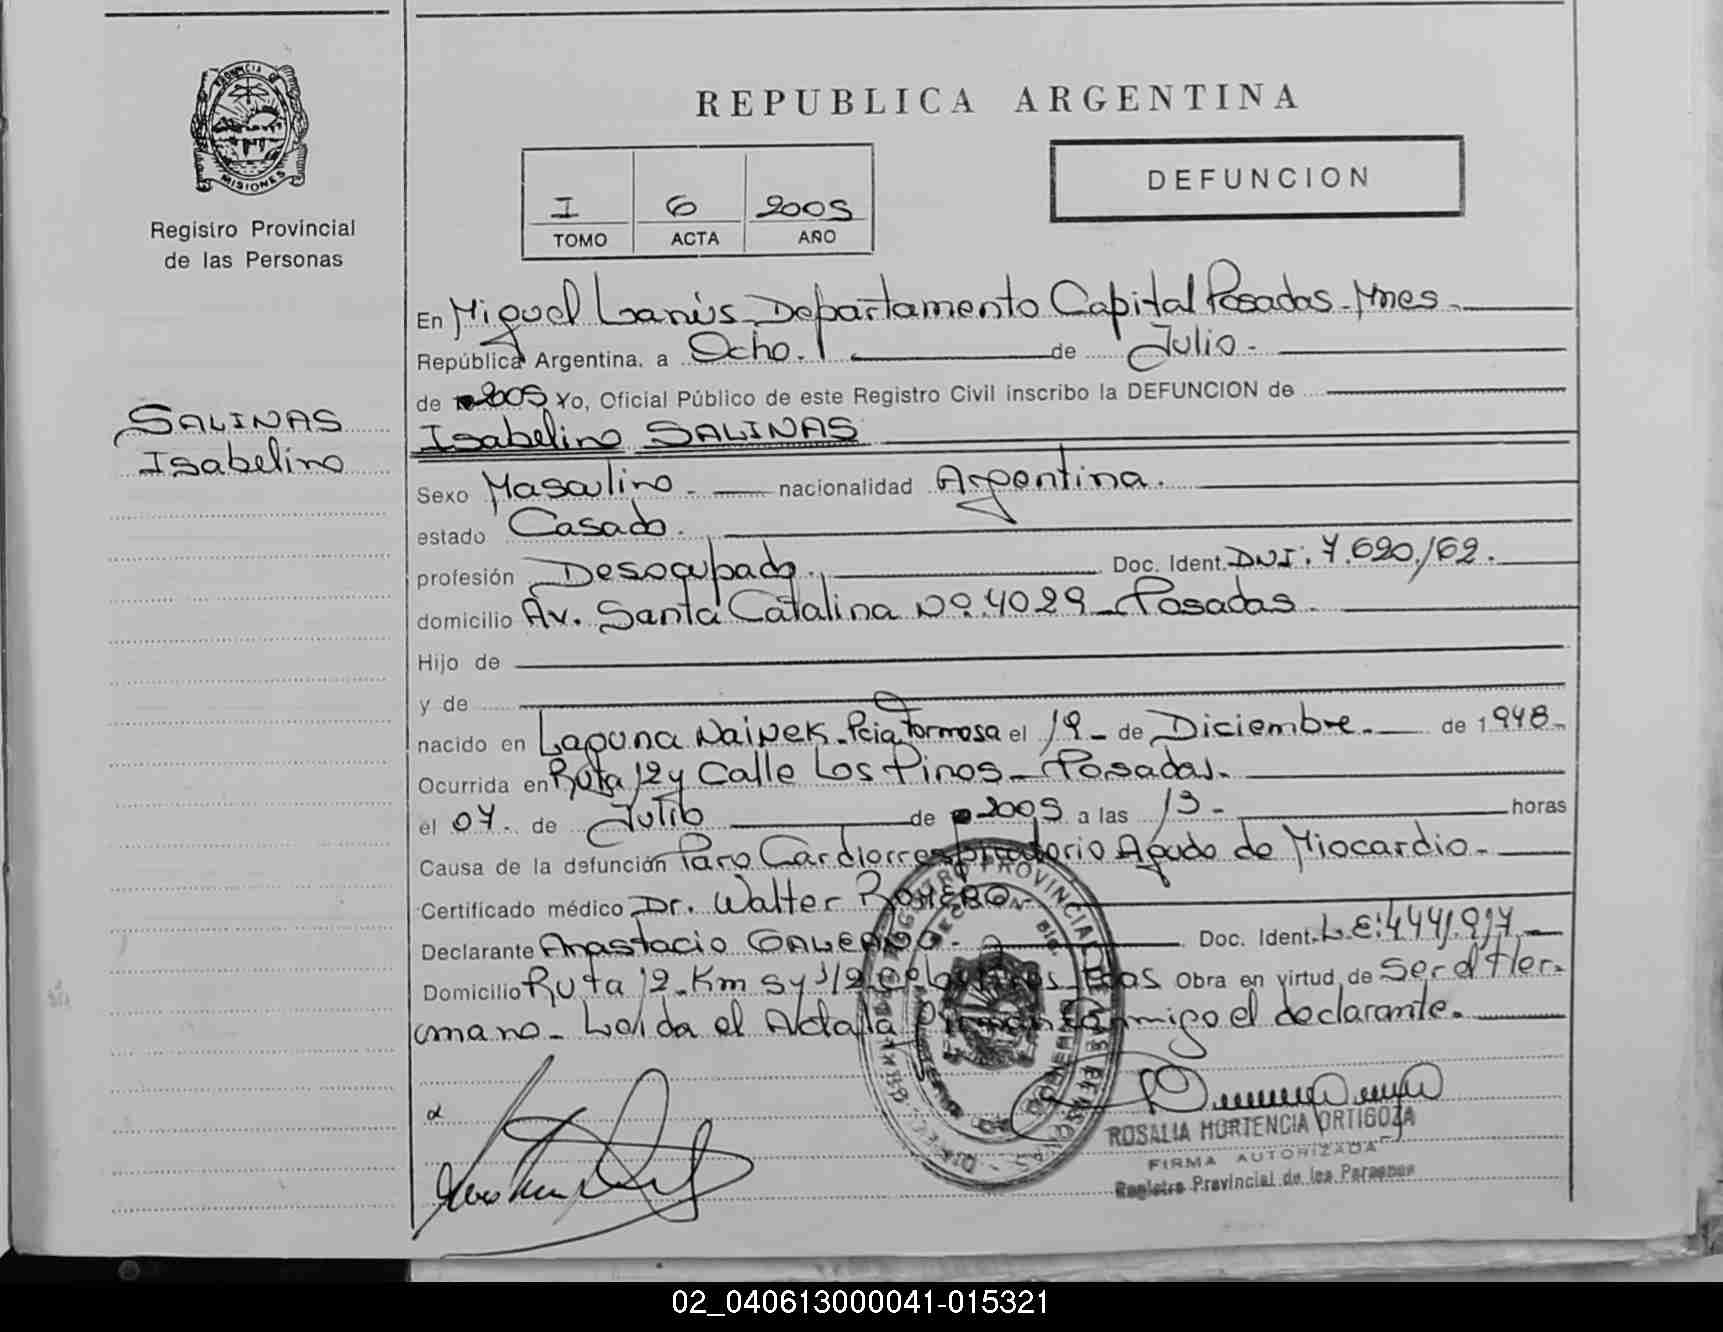 PROVINCIA DE
MISIONES
Registro Provincial
de las Personas
SALINAS
Isabelino
REPUBLICA ARGENTINA
I 6 2005
TOMO ACTA AÑO
DEFUNCION
En Miguel Lanús Departamento Capital Posadas - Mnes -
República Argentina, a Ocho. de Julio -
de 2005 Yo, Oficial Público de este Registro Civil inscribo la DEFUNCION de
Isabelino SALINAS
Sexo Masculino - nacionalidad Argentina.
estado Casado.
profesión Desocupado. Doc. Ident. DNI: 7.620./62.
domicilio Av. Santa Catalina Nº 4029 - Posadas -
Hijo de
y de
nacido en Laguna Nainek - Pcia Formosa el 19 - de Diciembre - de 1948 -
Ocurrida en Ruta 12 y Calle Los Pinos - Posadas -
el 07. de Julio de 2005 a las 13 - horas
Causa de la defunción Paro Cardiorrespiratorio Agudo de Miocardio -
Certificado médico Dr. Walter ROMERO -
Declarante Anastacio GALEANO - Doc. Ident. L.E:
Domicilio Ruta 12 - Km 5 y 1/2 Pdas Obra en virtud de Ser el Her-
mano - Leida el Acta la Firman Conmigo el declarante -
ROSALIA HORTENCIA ORTIGOZA
FIRMA AUTORIZADA
Registro Provincial de las Personas
02_040613000041-015321